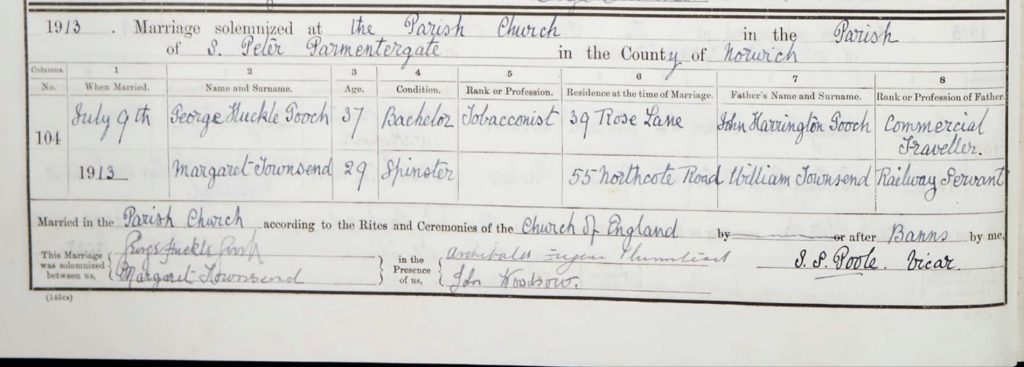 1913 . Marriage solemnized at the Parish Church in the Parish
of S. Peter Parmentergate in the County of Norwich
Columns. 1 2 3 4 5 6 7 8
No. When Married. Name and Surname. Age. Condition. Rank or Profession. Residence at the time of Marriage. Father's Name and Surname. Rank or Profession of Father.
104 July 9th George Huckle Gooch 37 Bachelor Tobacconist 39 Rose Lane John Harrington Gooch Commercial Traveller.
1913 Margaret Townsend 29 Spinster 55 Northcote Road William Townsend Railway Servant
Married in the Parish Church according to the Rites and Ceremonies of the Church of England by or after Banns by me,
This Marriage was solemnized between us, George Huckle Gooch in the Presence of us, Archibald Eugene S. S. Poole. Vicar.
Margaret Townsend John Woodrow.
(145ca)